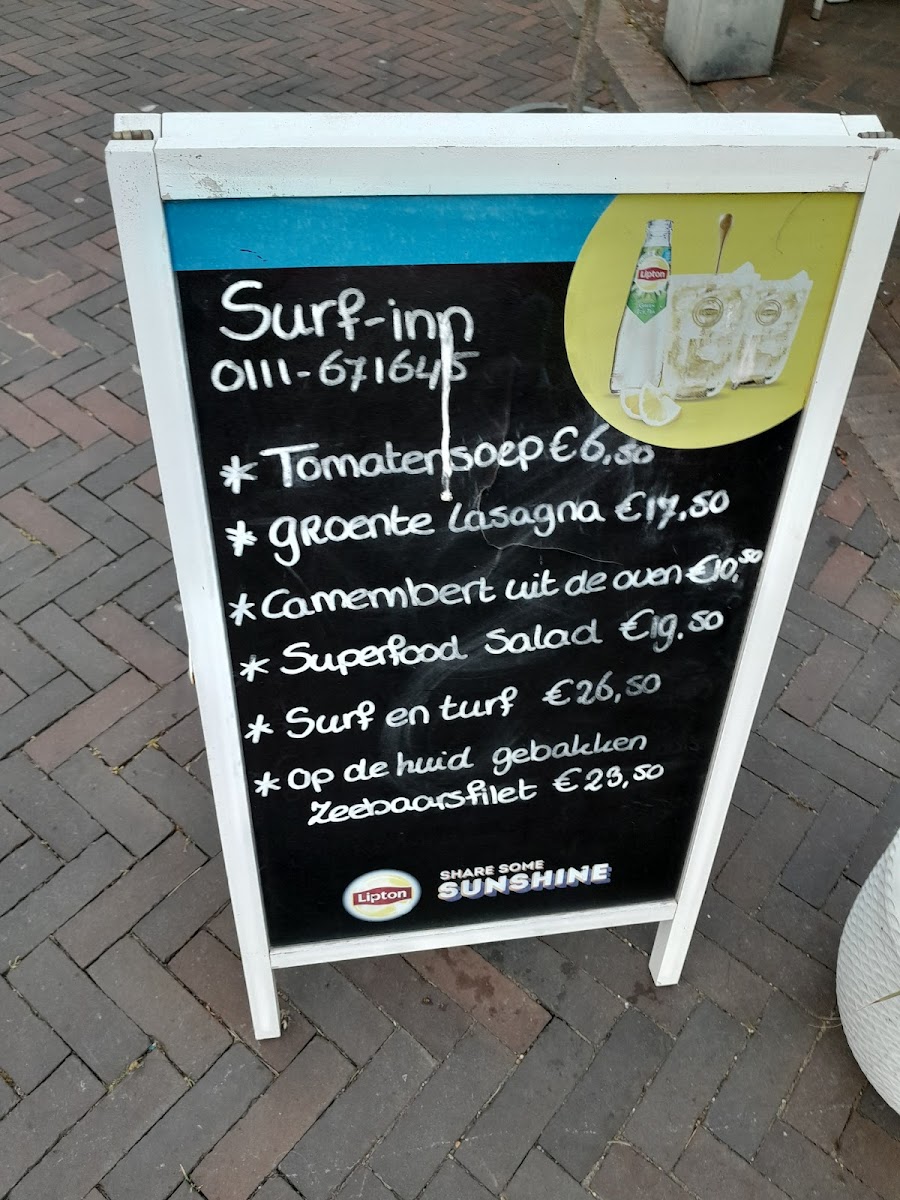 Surf-inn
0111-671645
Lipton
* Tomatensoep €6,50
* gRoente Lasagna €17,50
* Camembert uit de oven €10,50
* Superfood Salad €19,50
* Surf en turf €26,50
* Op de huid gebakken
Zeebaarsfilet €23,50
Lipton
SHARE SOME
SUNSHINE